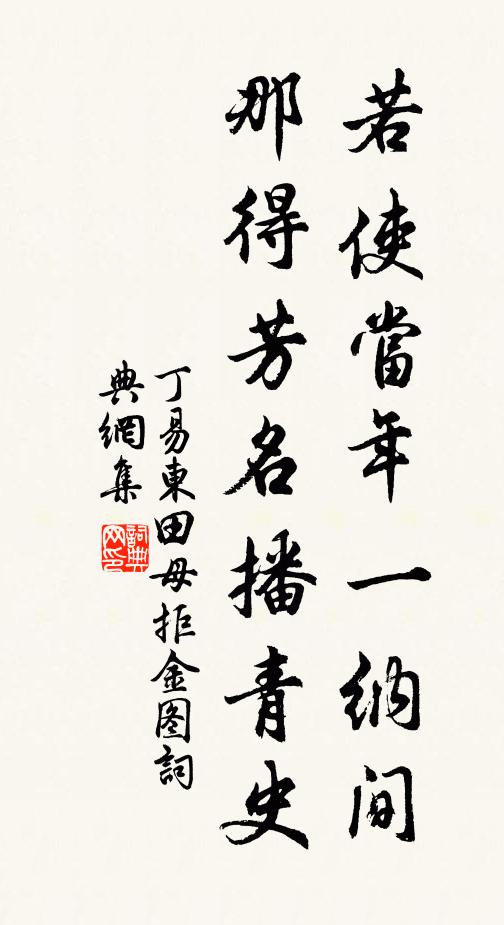 若使當年一納間
那得芳名播青史
丁易東田母拒金图詞
典網集
詞典網印